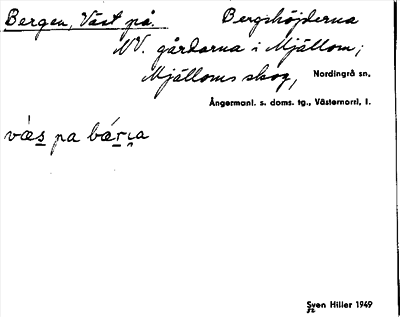 Bergen, Väst på. Bergshöjderna
NV. gårdarna i Mjällom,
Mjälloms skog, Nordingrå sn.
Ångermanl. s. doms. tg., Västernorrl. l.
væ̀s pa bǽri̯a
Sven Hiller 1949